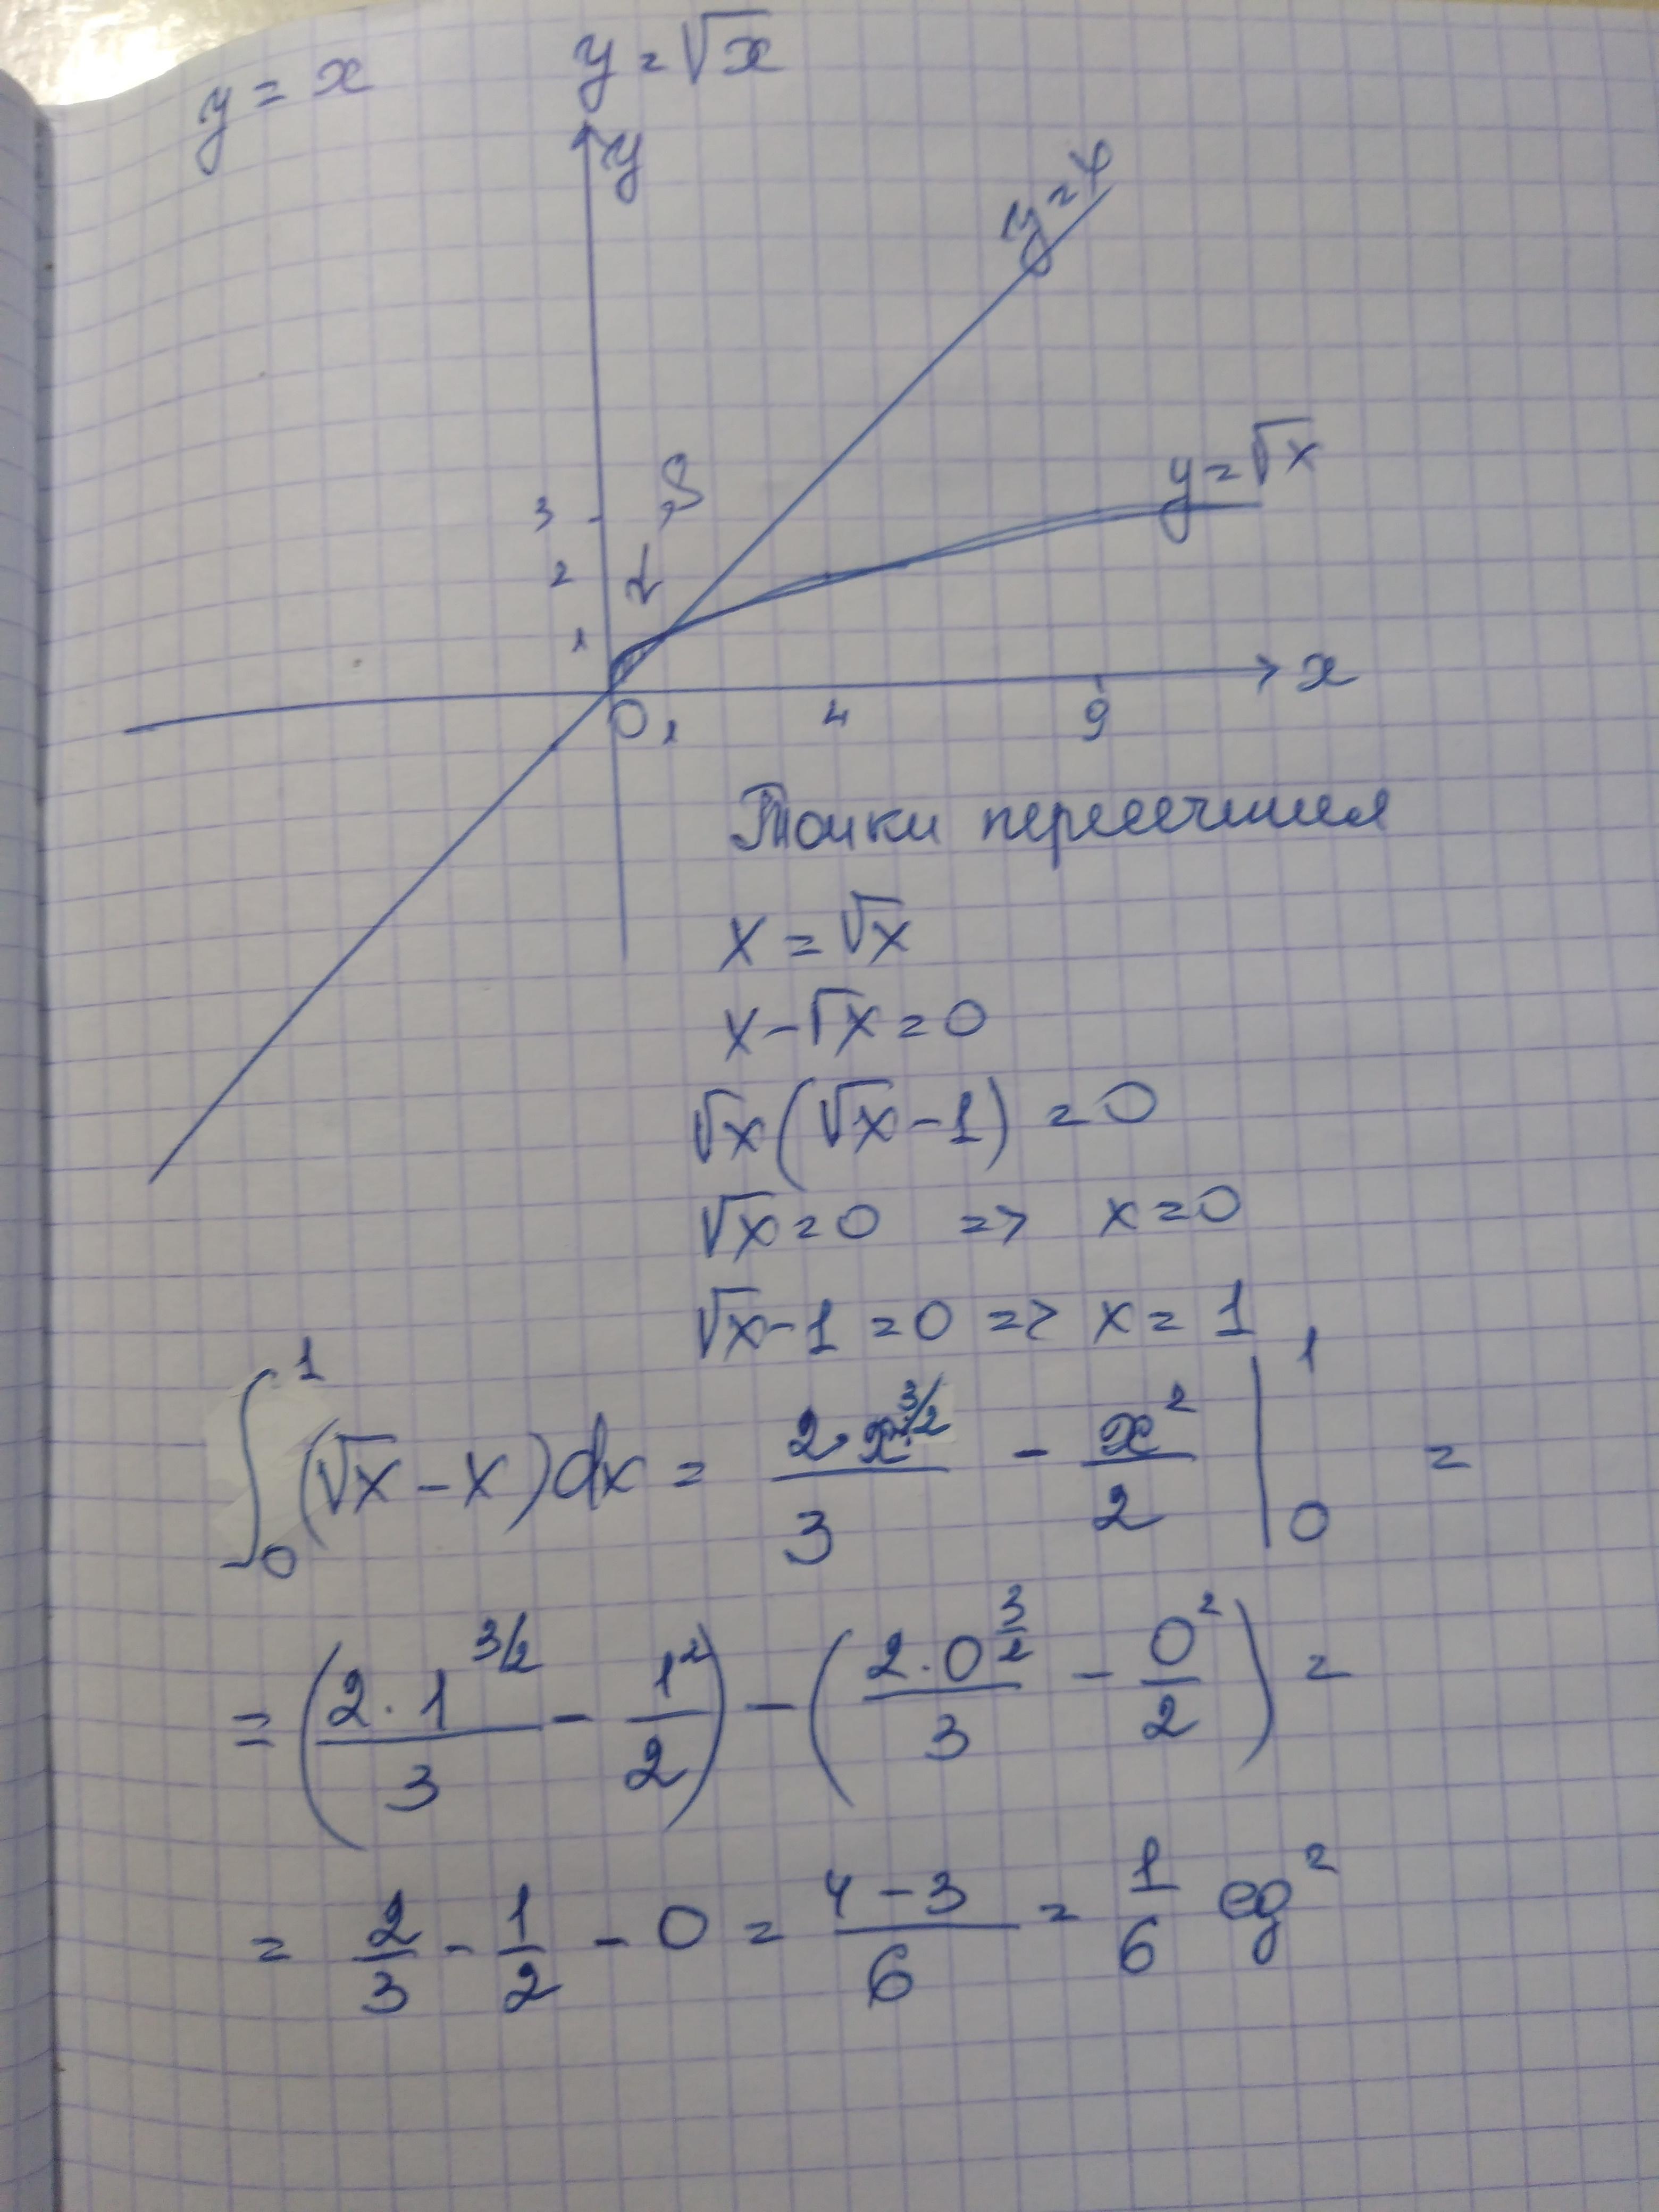 y = x y = √x
y
y = x
S
y = √x
3
2
1
x
0 1 4 9
Точки пересечения
x = √x
x - √x = 0
√x(√x - 1) = 0
√x = 0 => x = 0
√x - 1 = 0 => x = 1
∫₀¹ (√x - x)dx = 2·x^(3/2)/3 - x²/2 |₀¹ =
= (2·1^(3/2)/3 - 1²/2) - (2·0^(3/2)/3 - 0²/2) =
= 2/3 - 1/2 - 0 = (4-3)/6 = 1/6 ед²